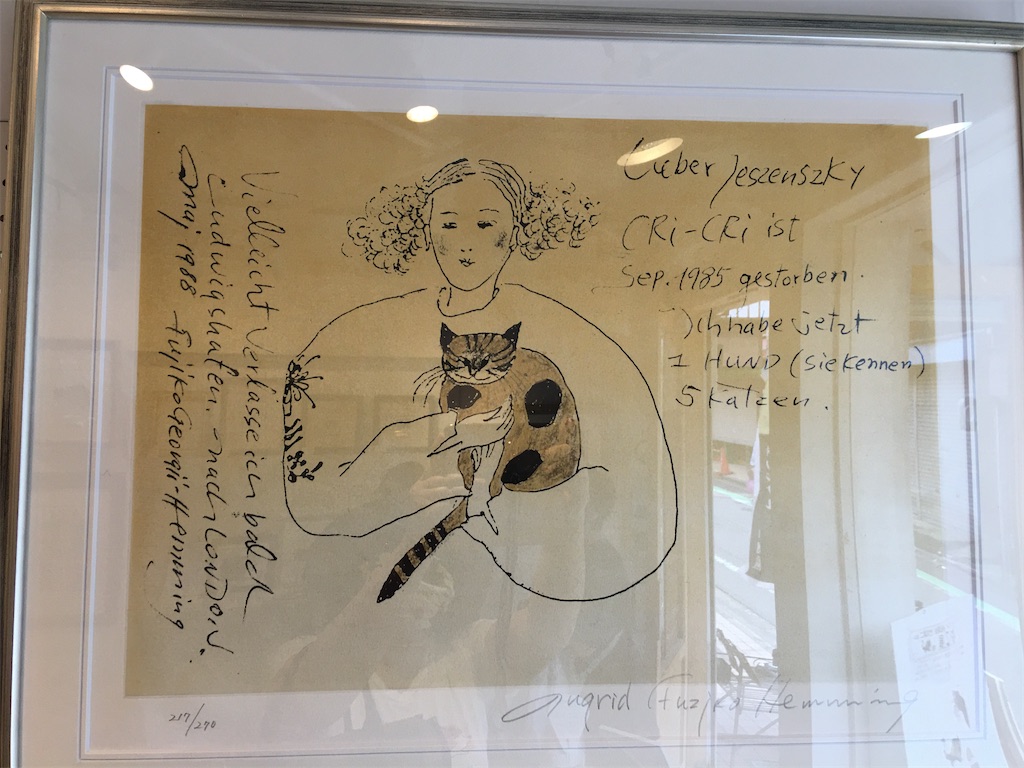 Lieber Jeszenszky
CRi-CRi ist
Sep. 1985 gestorben.
Ich habe jetzt
1 HUND (sie kennen)
5 Katzen.
Vielleicht Verlasse ich bald
Ludwigshafen. - nach LONDON.
maj 1988 Fujiko Georgii-Hemming
217/270
Ingrid Fuzjko Hemming